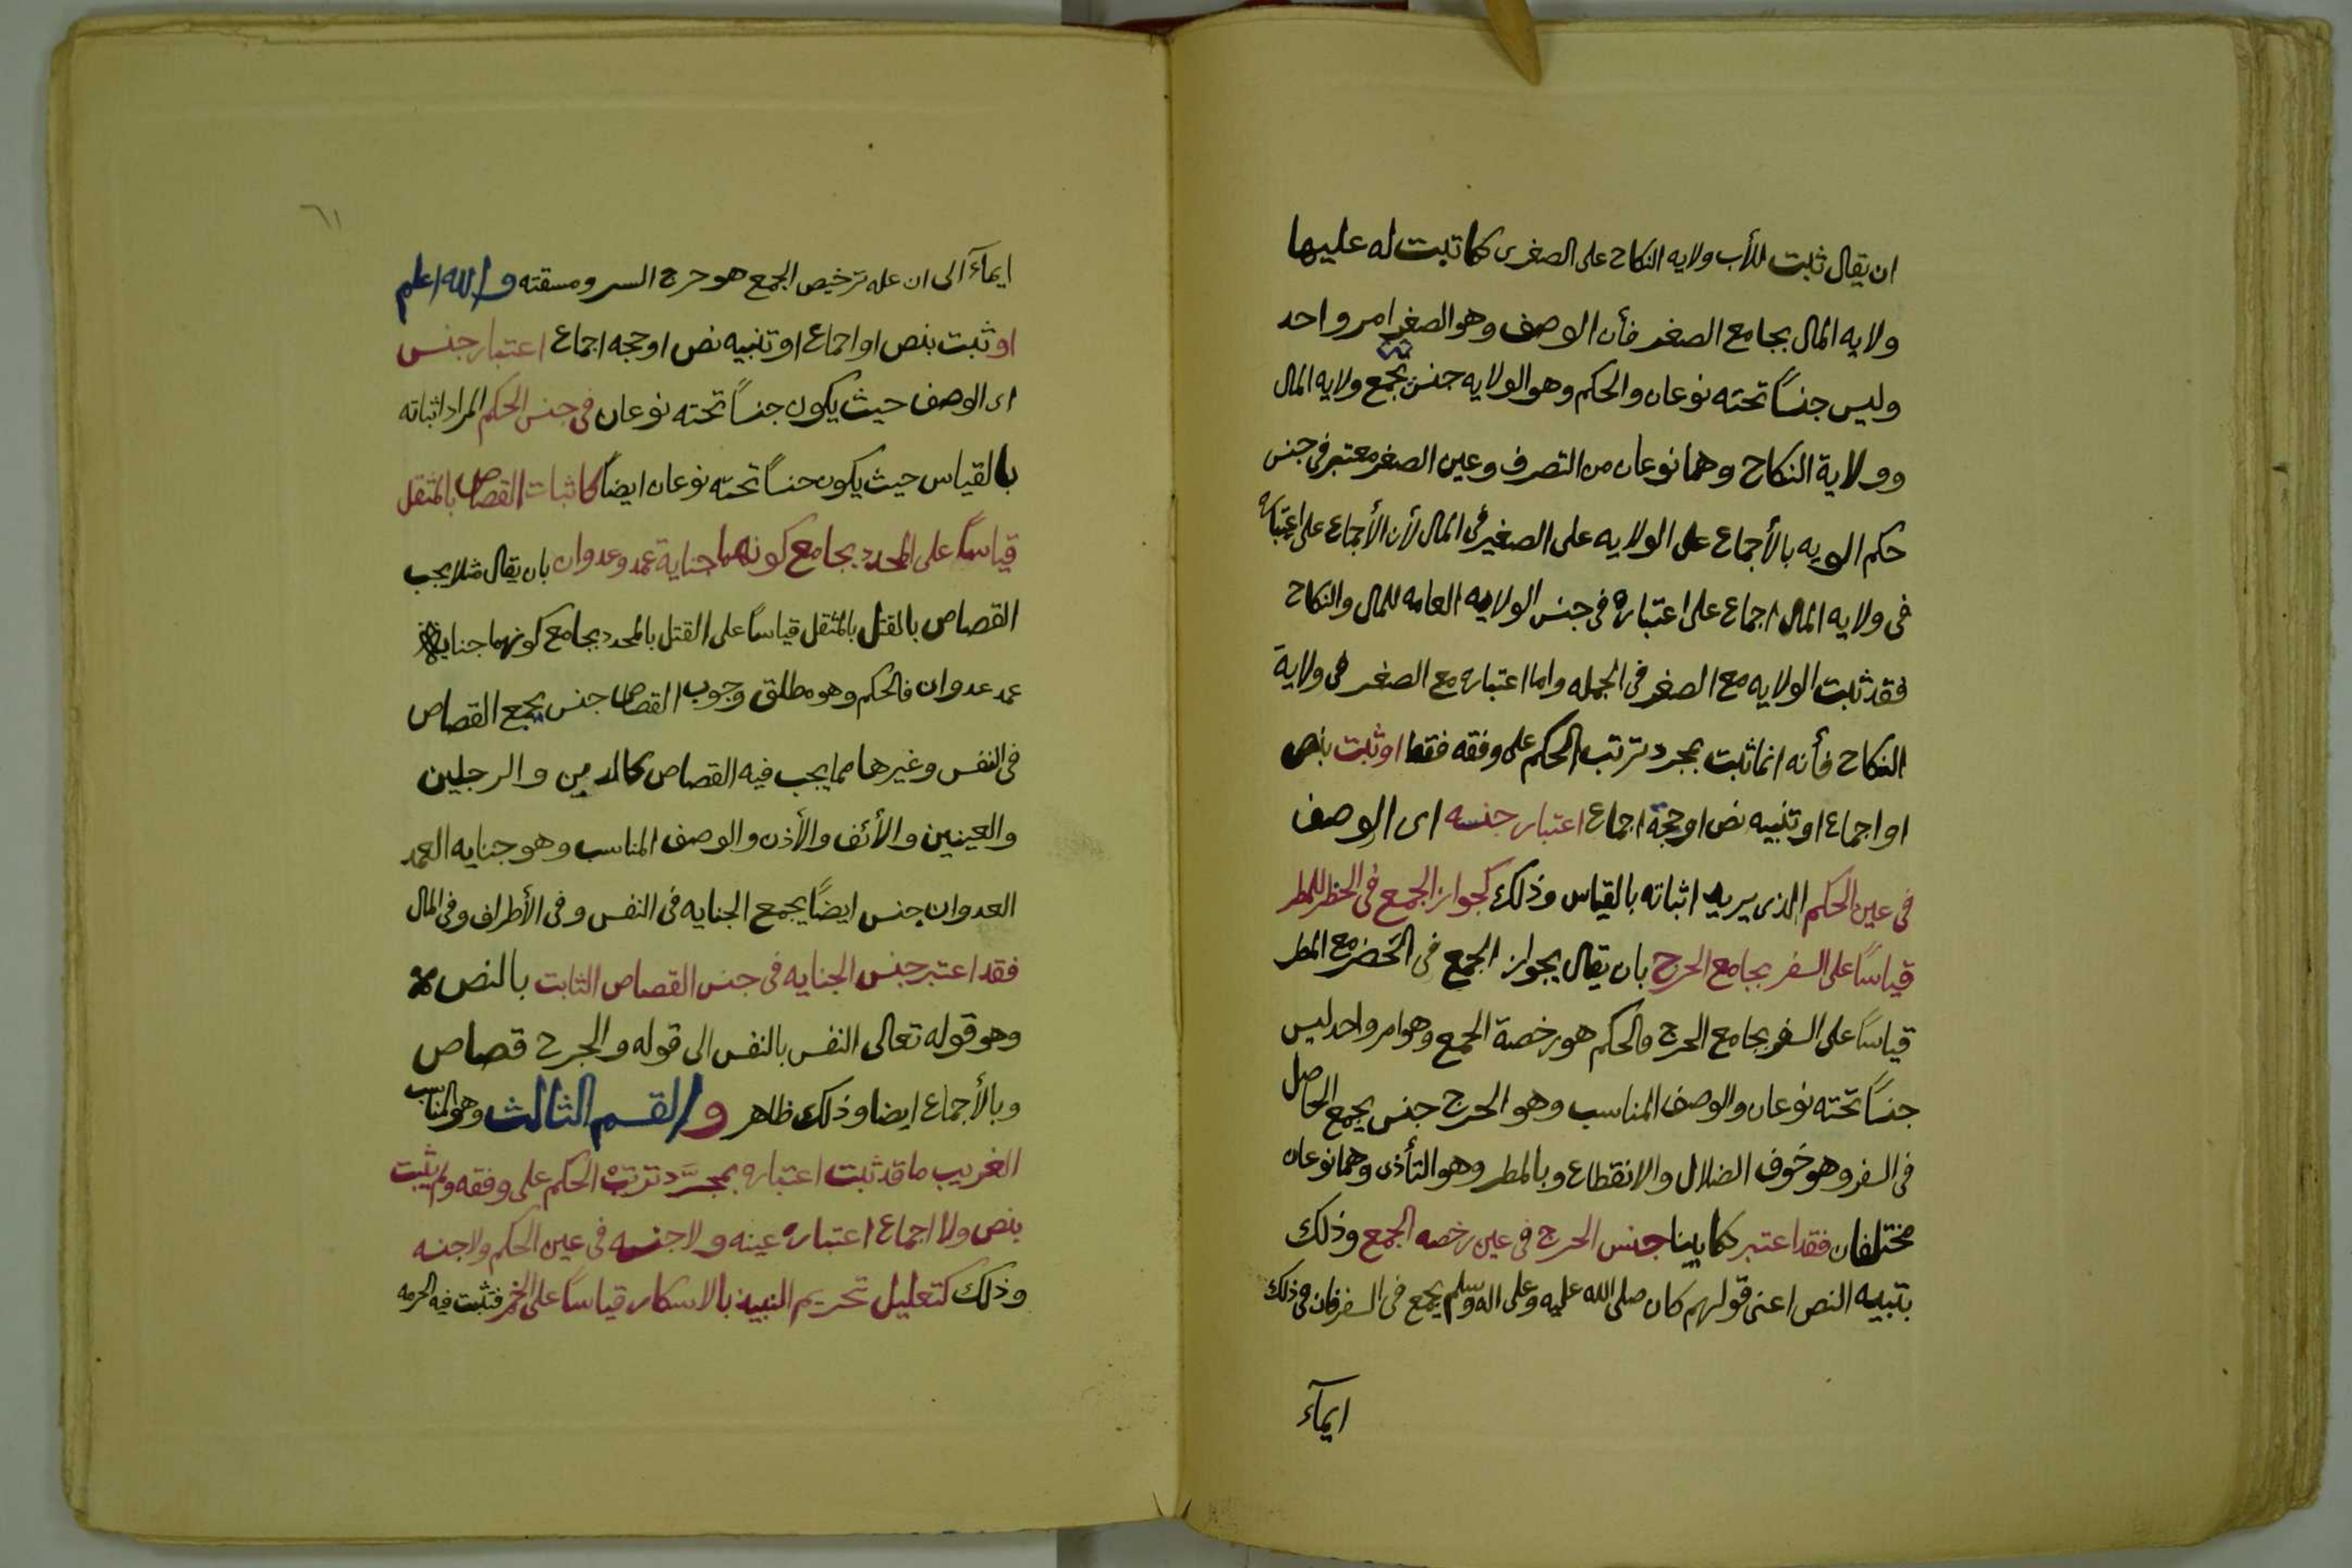 ان يقال ثبت للأب ولايه النكاح على الصغرى كما ثبت له عليها
ولايه المال بجامع الصغر فأن الوصف وهو الصغر امر واحد
وليس جنساً تحته نوعان والحكم وهو الولايه جنس يجمع ولايه المال
وولاية النكاح وهما نوعان من التصرف وعين الصغر معتبر في جنس
حكم الويه بالأجماع على الولايه على الصغير في المال لأن الأجماع على اعتباره
في ولايه المال اجماع على اعتباره في جنس الولايه العامه للمال والنكاح
فقد ثبت الولايه مع الصغر في الجمله واما اعتباره مع الصغر في ولاية
النكاح فأنه انما ثبت بمجرد ترتب الحكم على وفقه فقط او ثبت بنص
او اجماع او تنبيه نص او حجة اجماع اعتبار جنسه اى الوصف
في عين الحكم الذى يريد اثباته بالقياس وذلك كجواز الجمع في الحظر للمطر
قياساً على السفر بجامع الحرج بان يقال يجوز الجمع في الحَضَر مع المطر
قياساً على السفر بجامع الحرج فالحكم هو رخصة الجمع وهو امر واحد ليس
جنساً تحته نوعان والوصف المناسب وهو الحرج جنس يجمع الحاصل
في السفر وهو خوف الضلال والانقطاع وبالمطر وهو التأذى وهما نوعان
مختلفان فقد اعتبر كما بينا جنس الحرج في عين رخصه الجمع وذلك
بتنبيه النص اعنى قولهم كان صلى الله عليه وعلى اله وسلم يجمع في السفر فان في ذلك
ايمآء
٦١
ايمآء الى ان عله ترخيص الجمع هو حرج السر ومسقته والله اعلم
او ثبت بنص او اجماع او تنبيه نص او حجه اجماع اعتبار جنس
اى الوصف حيث يكون جنساً تحته نوعان في جنس الحكم المراد اثباته
بالقياس حيث يكون جنساً تحته نوعان ايضاً كاثبات القصاص بالمثقل
قياساً على المحدد بجامع كونهما جناية عمد وعدوان بان يقال مثلا يجب
القصاص بالقتل بالمثقل قياساً على القتل بالمحدد بجامع كونهما جناية
عمد عدوان فالحكم وهو مطلق وجوب القصاص جنس يجمع القصاص
في النفس وغيرها مما يجب فيه القصاص والرجلين
والعينين والأنف والأذن والوصف المناسب وهو جنايه العمد
العدوان جنس ايضاً يجمع الجنايه في النفس وفي الأطراف وفي المال
فقد اعتبر جنس الجنايه في جنس القصاص الثابت بالنص
وهو قوله تعالى النفس بالنفس الى قوله والجرح قصاص
وبالأجماع ايضا وذلك ظاهر والقسم الثالث وهو المناسب
الغريب ما قد ثبت اعتباره بمجرَّد ترتب الحكم على وفقه ولم يثبت
بنص ولا اجماع اعتباره عينه ولا جنسه في عين الحكم ولا جنسه
وذلك كتعليل تحريم النبيذ بالاسكار قياساً على الخمر فتثبت فيه الحرمه